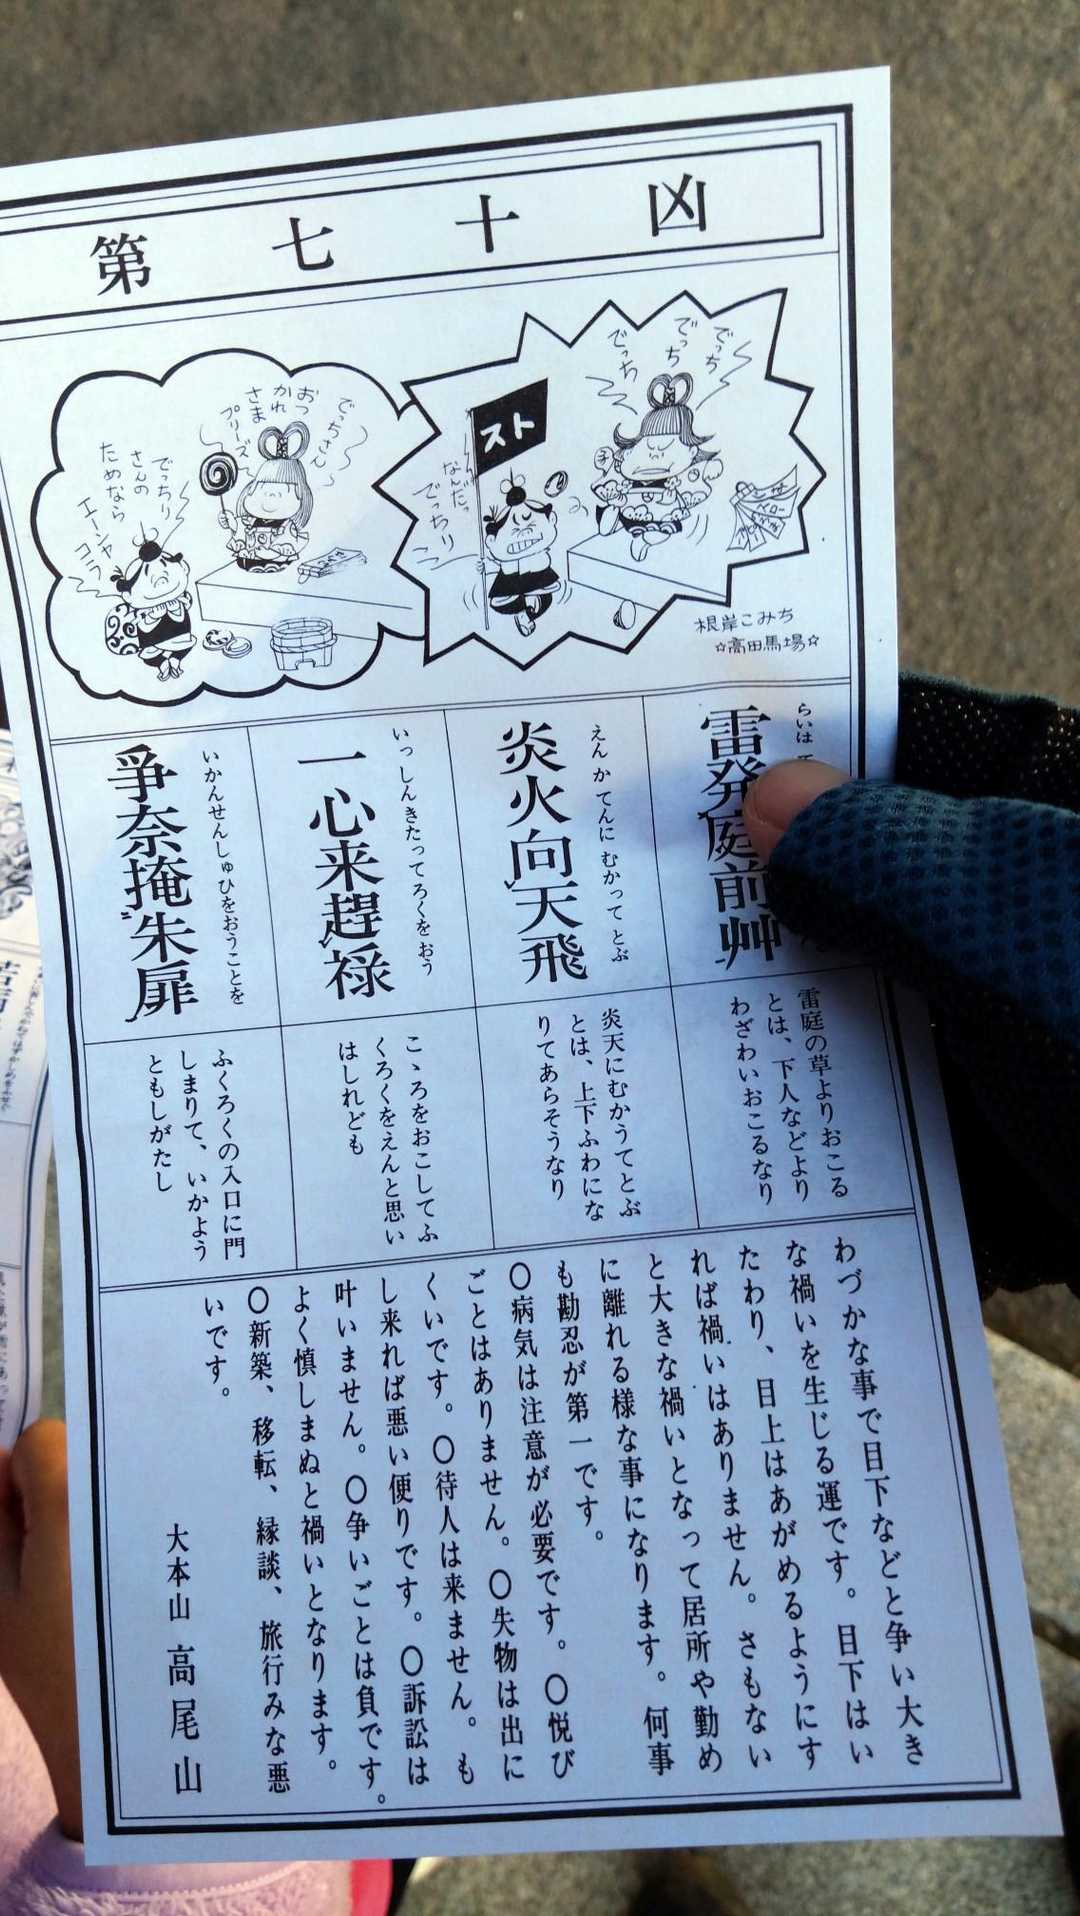 第七十凶
でっち
でっち
でっち
スト
なんだっ
でっちり
根岸こみち
☆高田馬場☆
でっちさん
おつ
かれ
さま
プリーズ
でっちり
さんの
ためなら
エーンヤ
コラ
らいは
雷発庭前艸
えんかてんにむかってとぶ
炎火向天飛
いっしんきたってろくをおう
一心来趕禄
いかんせんしゅひをおうことを
爭奈掩朱扉
雷庭の草よりおこる
とは、下人などより
わざわいおこるなり
炎天にむかうてとぶ
とは、上下ふわにな
りてあらそうなり
こゝろをおこしてふ
くろくをえんと思い
はしれども
ふくろくの入口に門
しまりて、いかよう
ともしがたし
わづかな事で目下などと争い大き
な禍いを生じる運です。目下はい
たわり、目上はあがめるようにす
れば禍いはありません。さもない
と大きな禍いとなって居所や勤め
に離れる様な事になります。何事
も勘忍が第一です。
〇病気は注意が必要です。〇悦び
ごとはありません。〇失物は出に
くいです。〇待人は来ません。も
し来れば悪い便りです。〇訴訟は
叶いません。〇争いごとは負です。
よく慎しまぬと禍いとなります。
〇新築、移転、縁談、旅行みな悪
いです。
大本山 高尾山